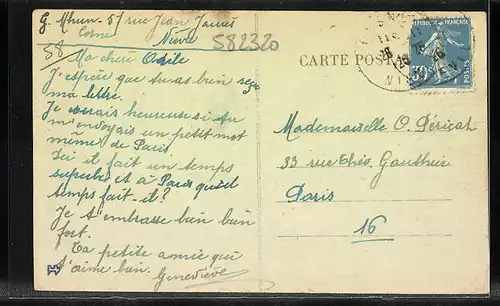 G. Mhun - 57 rue Jean Jaurès
Cosne Nièvre
58
582320
Ma chère Odile
J'espère que tu as bien reçu
ma lettre.
Je serais heureuse si tu
m'envoyais un petit mot
même de Paris
Ici il fait un temps
superbe et à Paris quel
temps fait-il?
Je t'embrasse bien bien
fort.
Ta petite amie qui
t'aime bien.
Geneviève
CARTE POSTALE
RÉPUBLIQUE FRANÇAISE
30
POSTES
Mademoiselle O. Péricat
33 rue Théo. Gauthier
Paris
16